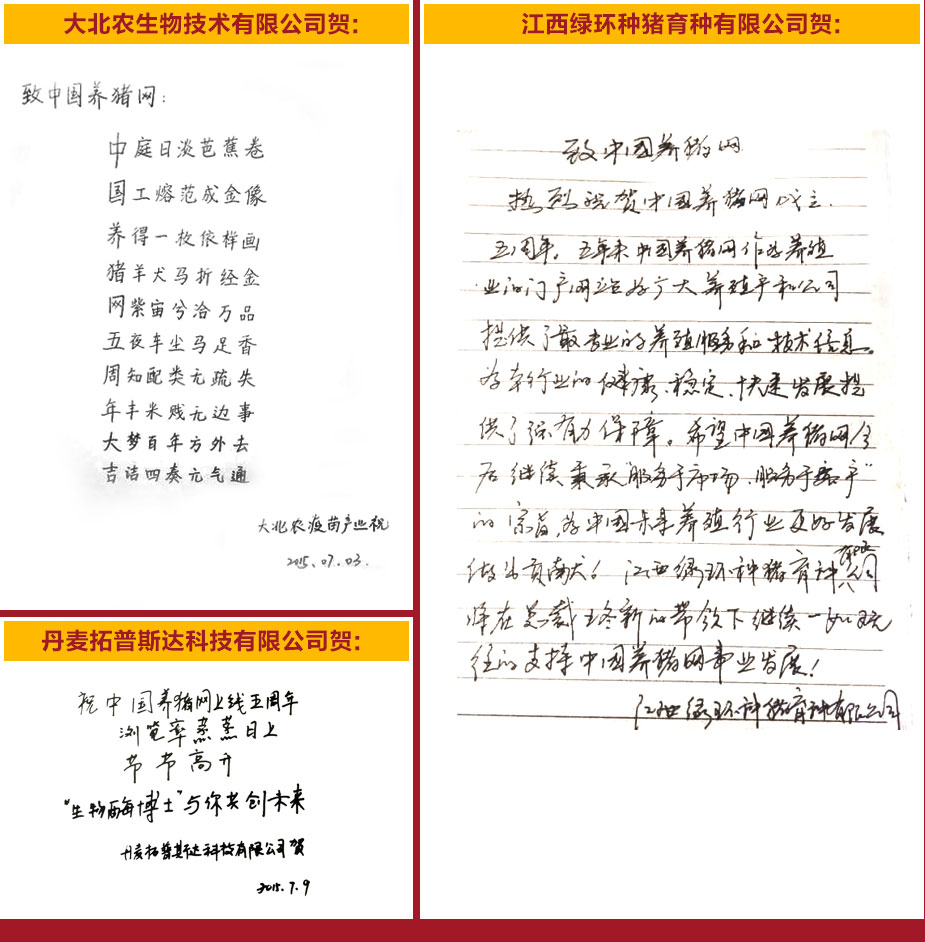 大北农生物技术有限公司贺:
致中国养猪网:
中庭日淡芭蕉卷
国工熔范成金像
养得一枚依样画
猪羊犬马折经金
网紫宙兮洽万品
五夜车尘马足香
周知配类无疏失
年丰米贱无边事
大梦百年方外去
吉诘四奏元气通
大北农疫苗产业祝
2015.07.03.
丹麦拓普斯达科技有限公司贺:
祝中国养猪网上线五周年
浏览率蒸蒸日上
节节高升
“生物酶博士”与你共创未来
丹麦拓普斯达科技有限公司贺
2015.7.9
江西绿环种猪育种有限公司贺:
致中国养猪网
热烈祝贺中国养猪网成立
五周年。五年来中国养猪网作为养殖
业的门户网站为广大养殖户和公司
提供了最专业的养殖服务和技术信息。
为本行业的健康、稳定、快速发展提
供了强有力保障。希望中国养猪网今
后继续秉承“服务于市场、服务于客户”
的宗旨,为中国未来养殖行业更好发展
做出贡献！江西绿环种猪育种有限公司
将在总裁王冬新的带领下继续一如既
往的支持中国养猪网事业发展！
江西绿环种猪育种有限公司